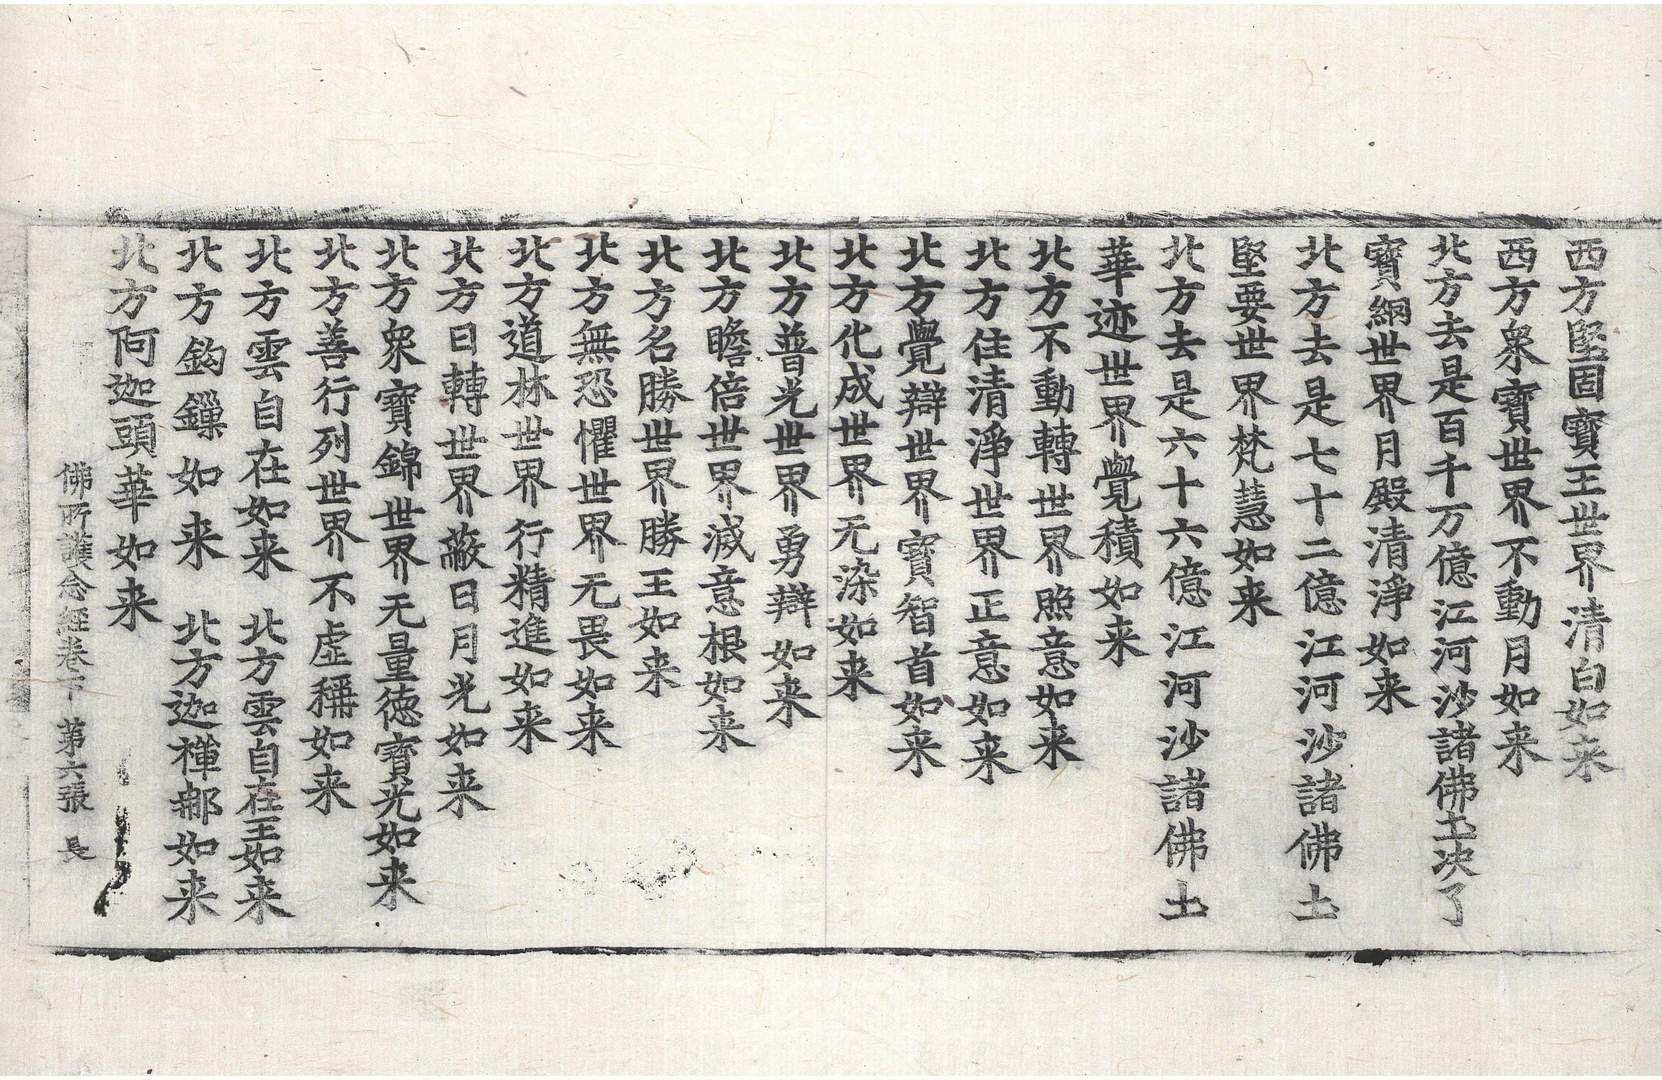 西方堅固寶王世界清白如来
西方衆寶世界不動月如来
北方去是百千万億江河沙諸佛土次了
寶網世界月殿清淨如来
北方去是七十二億江河沙諸佛土
堅要世界梵慧如来
北方去是六十六億江河沙諸佛土
華迹世界覺積如来
北方不動轉世界照意如来
北方住清淨世界正意如来
北方覺辯世界寶智首如来
北方化成世界无染如来
北方普光世界勇辯如来
北方瞻倍世界滅意根如来
北方名勝世界勝王如来
北方無恐懼世界无畏如来
北方道林世界行精進如来
北方日轉世界蔽日月光如来
北方衆寶錦世界无量德寶光如来
北方善行列世界不虛稱如来
北方雲自在如来　北方雲自在王如来
北方鈎鏁如来　北方迦禪那如来
北方阿迦頭華如来
佛所護念經卷下　第六張　長